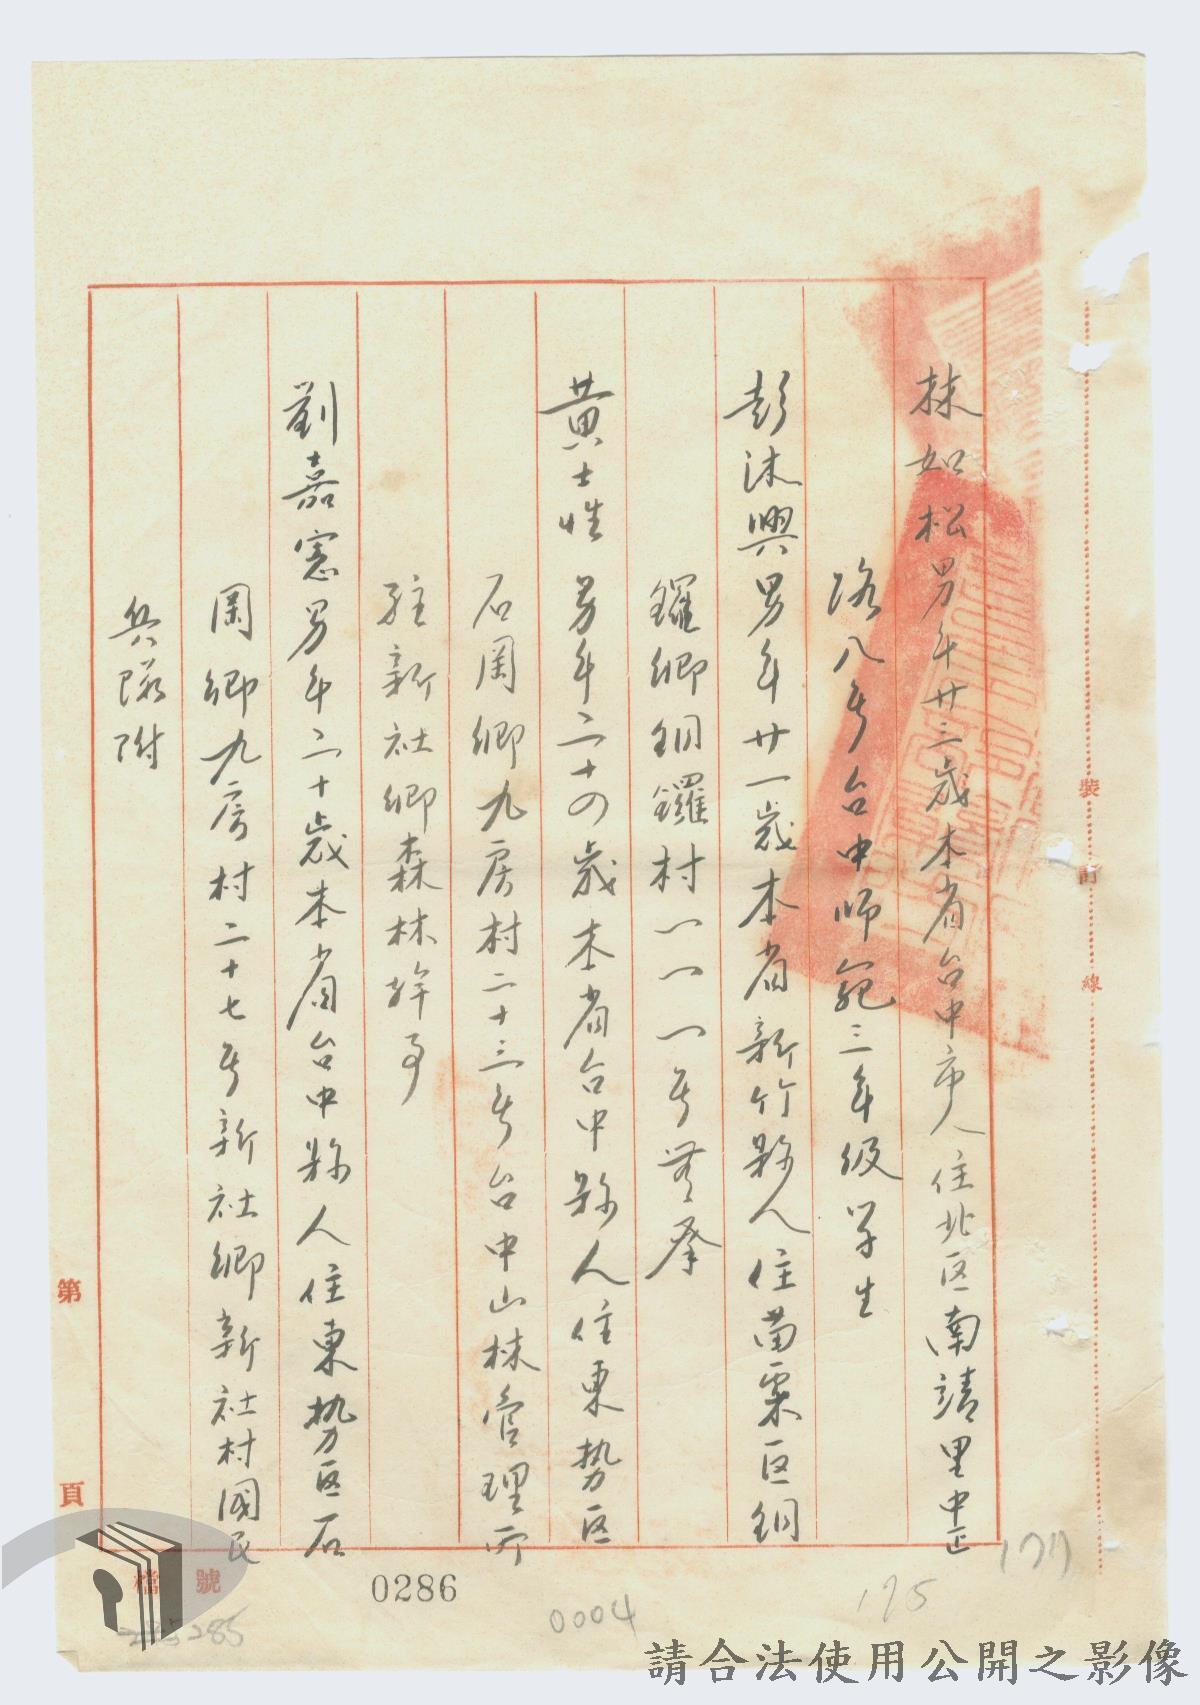 林如松男年廿三歲本省台中市人住北区南靖里中正
路八号台中师範三年级学生
彭沐興男年廿一歲本省新竹縣人住苗栗区銅
鑼鄉銅鑼村一一一号
黄士性男年二十四歲本省台中縣人住東势区
石岡鄉九房村二十三号台中山林管理所
駐新社鄉森林幹事
劉嘉憲男年二十歲本省台中縣人住東势区石
岡鄉九房村二十七号新社鄉新社村國民
兵隊附
裝
訂
線
第
頁
檔號
0286
0004
195
177
285
請合法使用公開之影像